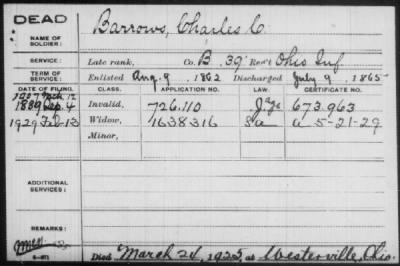 DEAD
NAME OF SOLDIER: Barrows, Charles C.
SERVICE: Late rank, Co. B, 39" Reg't Ohio Inf
TERM OF SERVICE: Enlisted Aug. 9, 1862 Discharged July 9, 1865
DATE OF FILING. CLASS. APPLICATION NO. LAW. CERTIFICATE NO.
1907 Mch. 12
1889 Sep. 4 Invalid, 726.110 673.963
1929 Feb-13 Widow, 1638316 a 5-21-29
Minor,
ADDITIONAL SERVICES:
REMARKS:
Died March 24, 1925, at Westerville, Ohio.